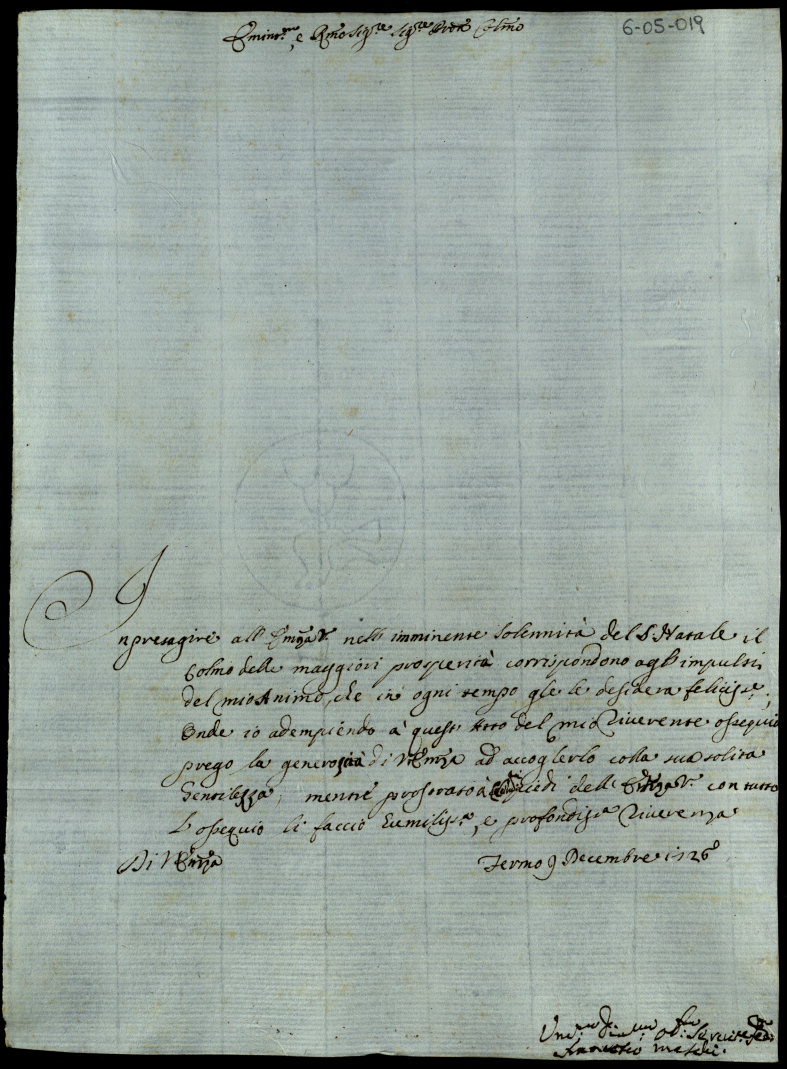 Eminmo, e Rmo Sigre Sigre Pron Colmo
6-05-019
In presagire all' Emza Vra nell' imminente Solennità del S. Natale il
Colmo delle maggiori prosperità corrispondono agl' impulsi
del mio Animo, che in ogni tempo gle le desidera felicisse;
Onde io adempiendo à quest' Atto del mio riverente ossequio
prego la generosità di V. Emza ad accoglierlo colla sua solita
Gentilezza, mentre prostrato à piedi dell' Emza Vra con tutto
l' ossequio li faccio Vumilissa, e profondissa riverenza
Di V. Emza
Fermo 9 Decembre 1726
Servire